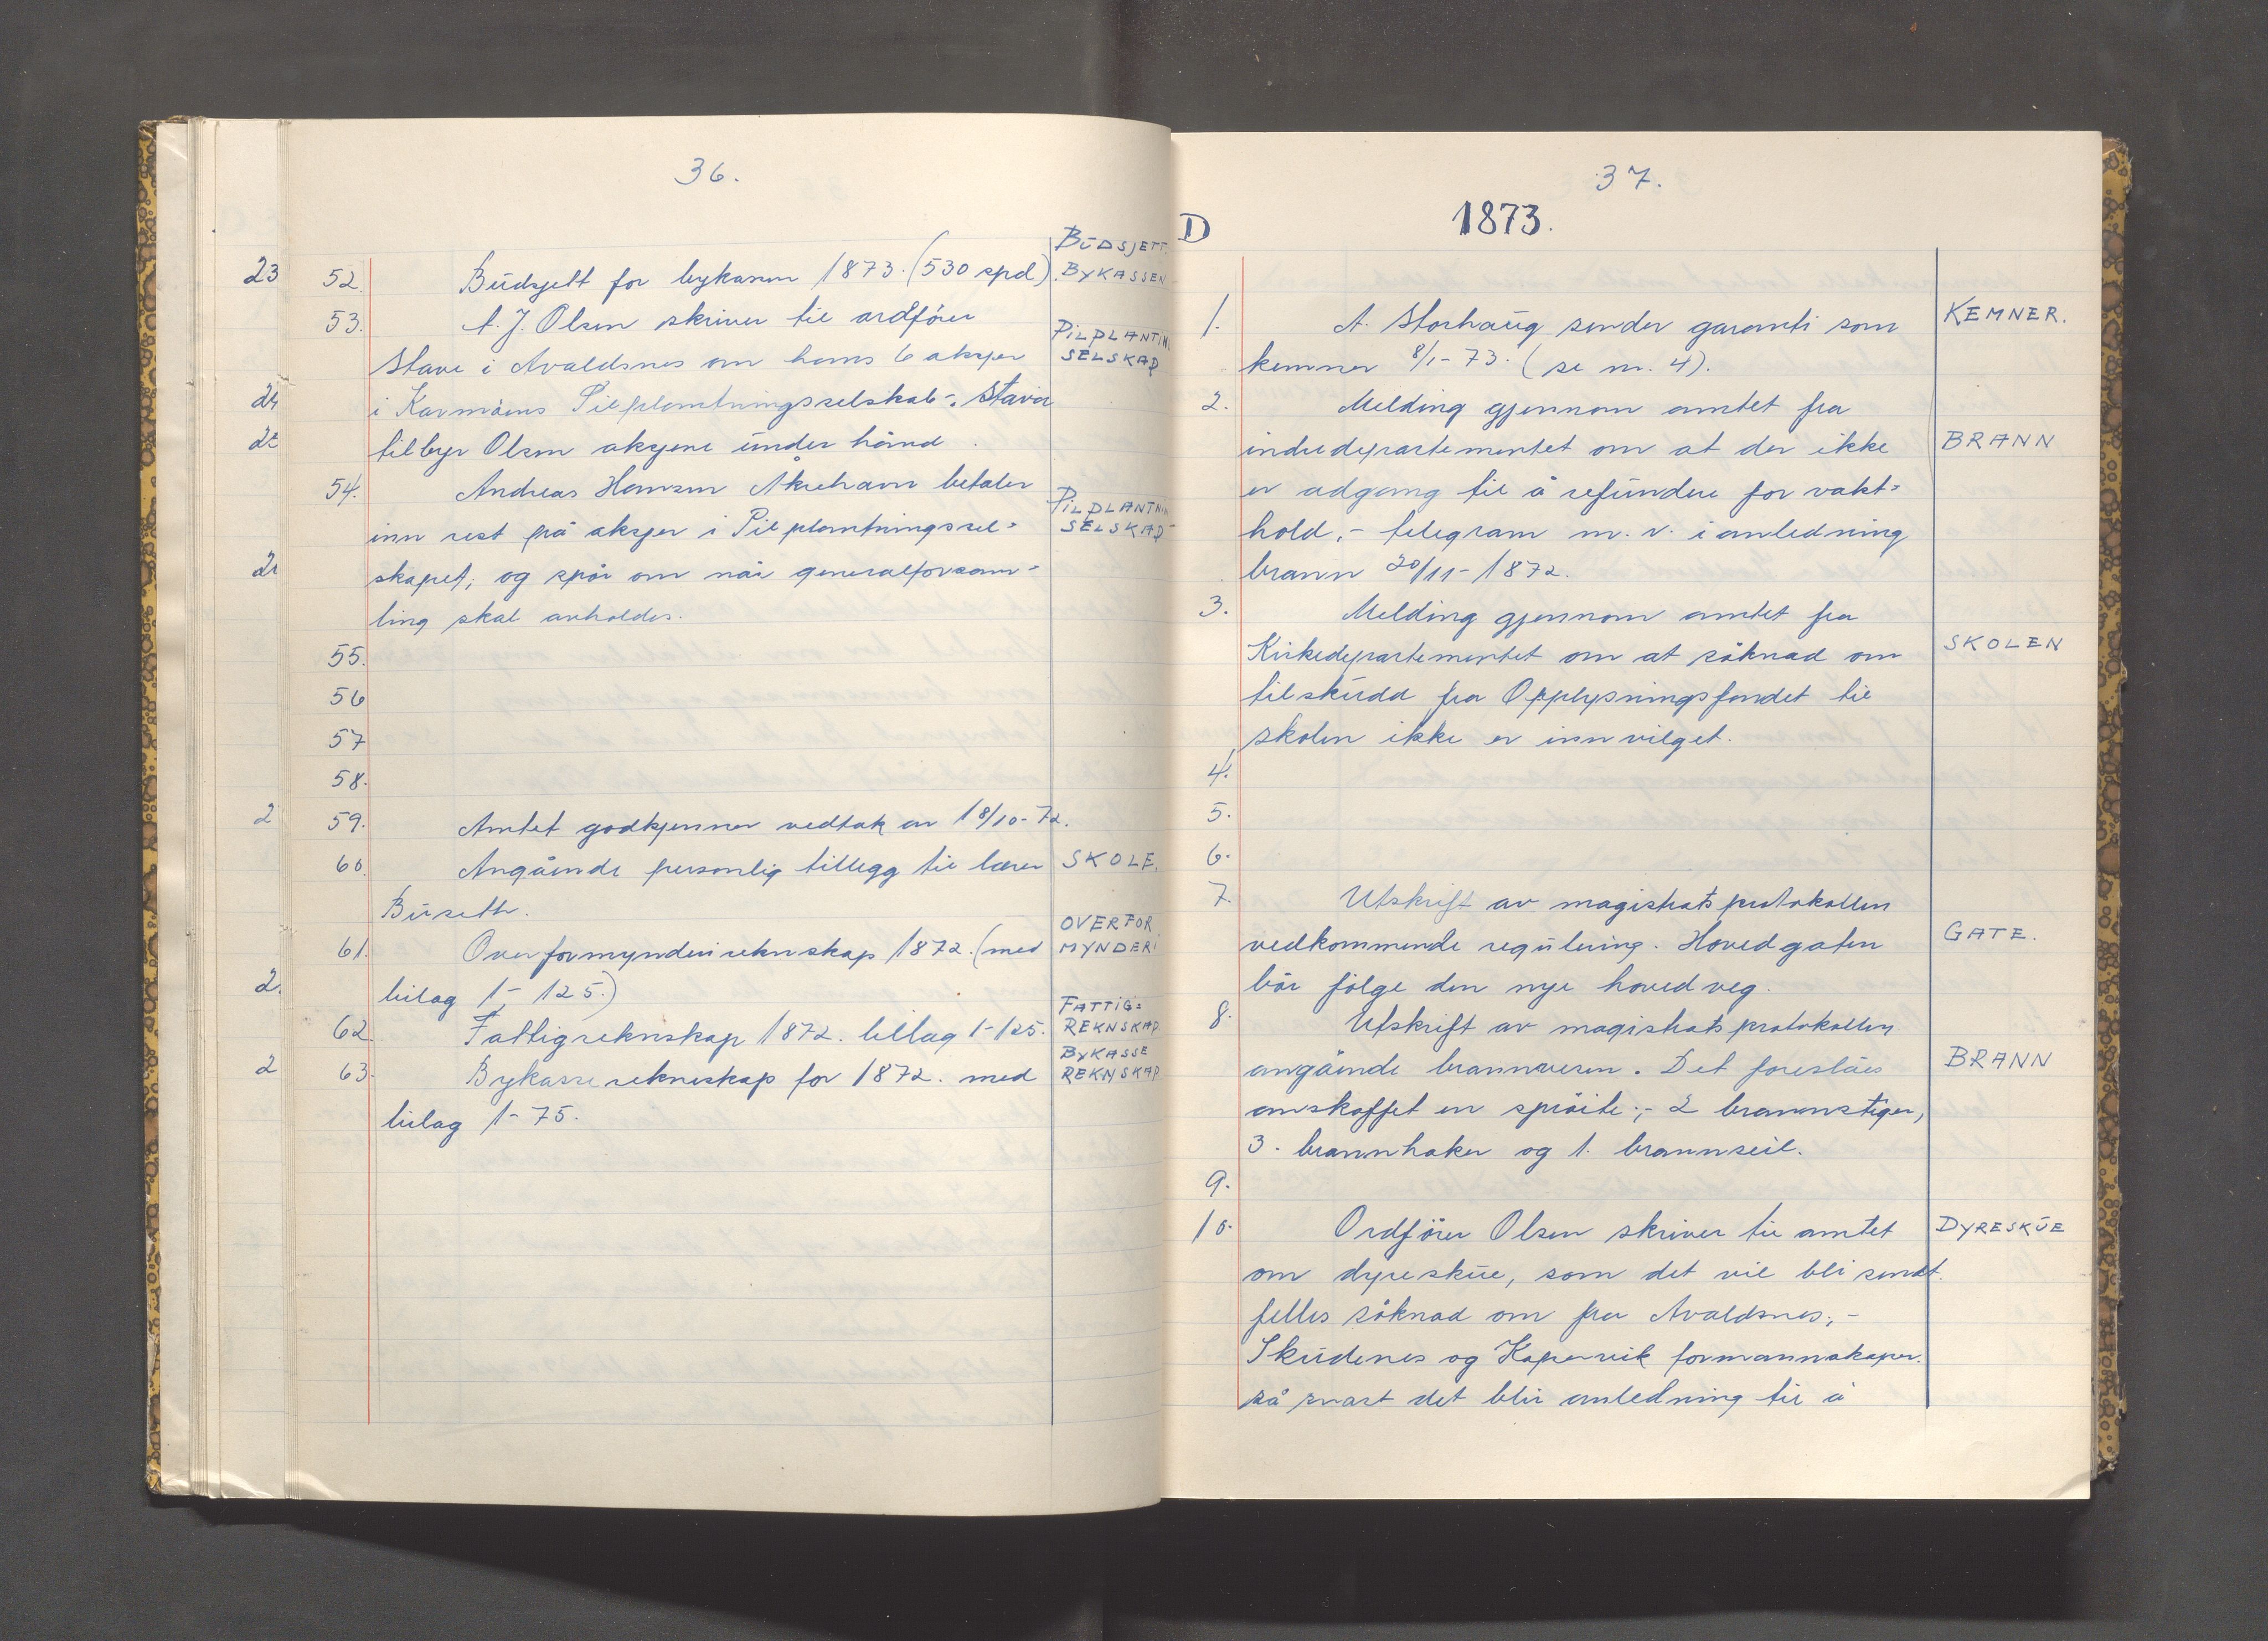 36.
BUDSJETT.
23 52. Budsjett for bykassen 1873. (530 spd). BYKASSEN
53. A. J. Olsen skriver til ordförer PILPLANTIN.
Stave i Avaldsnes om hans 6 aksjer SELSKAP
24 i Karmöens Pilplantningsselskab-. Stava
tilbyr Olsen aksjene under hånd.
54. Andreas Hansen Åkrehavn betaler PILPLANTNIN
inn rest på aksjer i Pilplantningssel= SELSKAP
skapet, og spör om når generalforsam=
ling skal avholdes.
55.
56
57
58.
2 59. Amtet godkjenner vedtak av 18/10-72.
60. Angående personlig tillegg til lærer SKOLE.
Buseth.
OVERFOR
61. Overformynderireknskap 1872. (med MYNDERI
2. bilag 1- 125.)
FATTIG=
62. Fattigreknskap 1872. billag 1-125. REKNSKAP.
BYKASSE
2 63. Bykassereknskap for 1872. med REKNSKAP
bilag 1- 75.
37.
D 1873.
1. A. Storhaug sender garanti som KEMNER.
kemner 8/1- 73. (se nr. 4).
2. Melding gjennom amtet fra
indredepartementet om at der ikke BRANN
er adgang til å refundere for vakt=
hold,- telegram m. v. i anledning
brann 20/11- 1872.
3. Melding gjennom amtet fra
Kirkedepartementet om at söknad om SKOLEN
tilskudd fra Opplysningsfondet til
skolen ikke er innvilget.
4.
5.
6.
7. Utskrift av magistratsprotokollen
vedkommende regulering. Hovedgaten GATE.
bör fölge den nye hovedveg.
8. Utskrift av magistratsprotokollen
angående brannvesen. Det foreslåes BRANN
anskaffet en spröite;- 2 brannstiger,
3. brannhaker og 1. brannseil.
9.
10. Ordförer Olsen skriver til amtet DYRESKUE
om dyreskue, som det vil bli sendt.
felles söknad om fra Avaldsnes;-
Skudenes og Kopervik formannskaper.
så snart det blir anledning til å